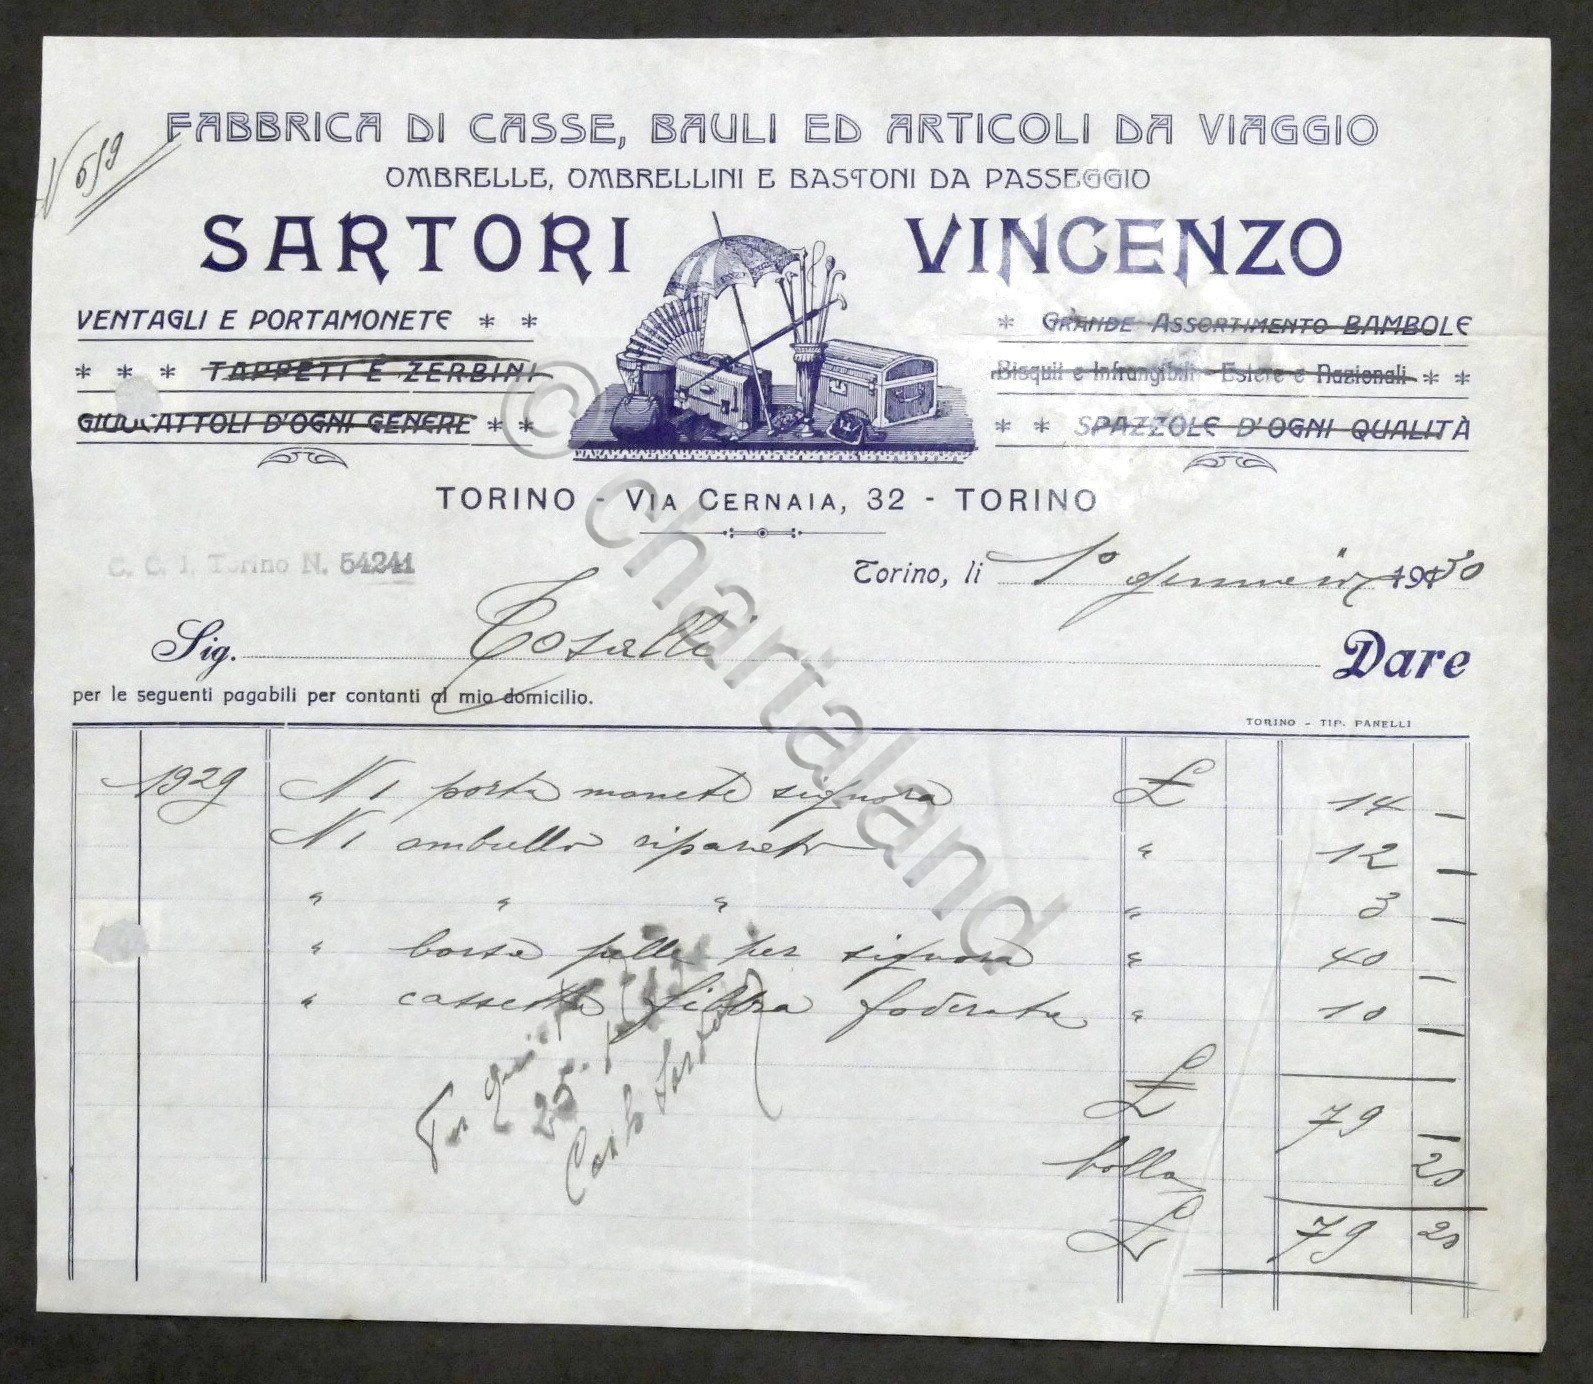 N 519
FABBRICA DI CASSE, BAULI ED ARTICOLI DA VIAGGIO
OMBRELLE, OMBRELLINI E BASTONI DA PASSEGGIO
SARTORI VINCENZO
VENTAGLI E PORTAMONETE * *
* * * TAPPETI E ZERBINI
GIUOCATTOLI D'OGNI GENERE * *
* GRANDE ASSORTIMENTO BAMBOLE
Bisquit e Infrangibili - Estere e Nazionali * *
* * SPAZZOLE D'OGNI QUALITÀ
TORINO - VIA CERNAIA, 32 - TORINO
C. C. I. Torino N. 54241
Torino, li 1º gennaio 1930
Sig. Tosalli Dare
per le seguenti pagabili per contanti al mio domicilio.
TORINO - TIP. PANELLI
1929 N 1 porta monete signora £ 14 —
N 1 ombrello riparato " 12 —
" " " " 3 —
" borsa pelle per signora " 40 —
" cassetta fibbra foderata " 10 —
£ 79 —
bolla 20
£ 79 20
Per
25
Carlo
© chartaland